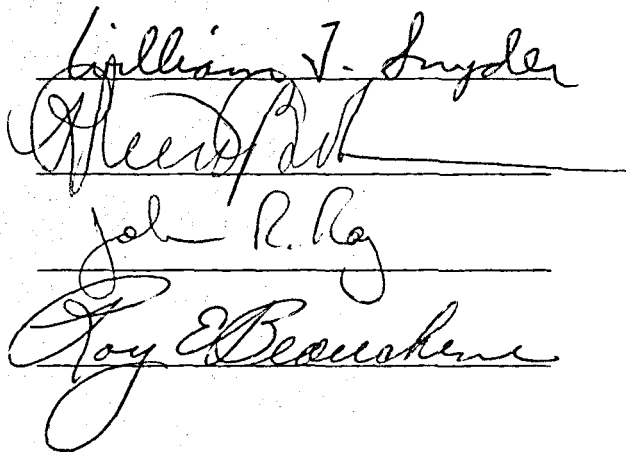 William T. Snyder
John R. Ray
Roy E. Beauchene